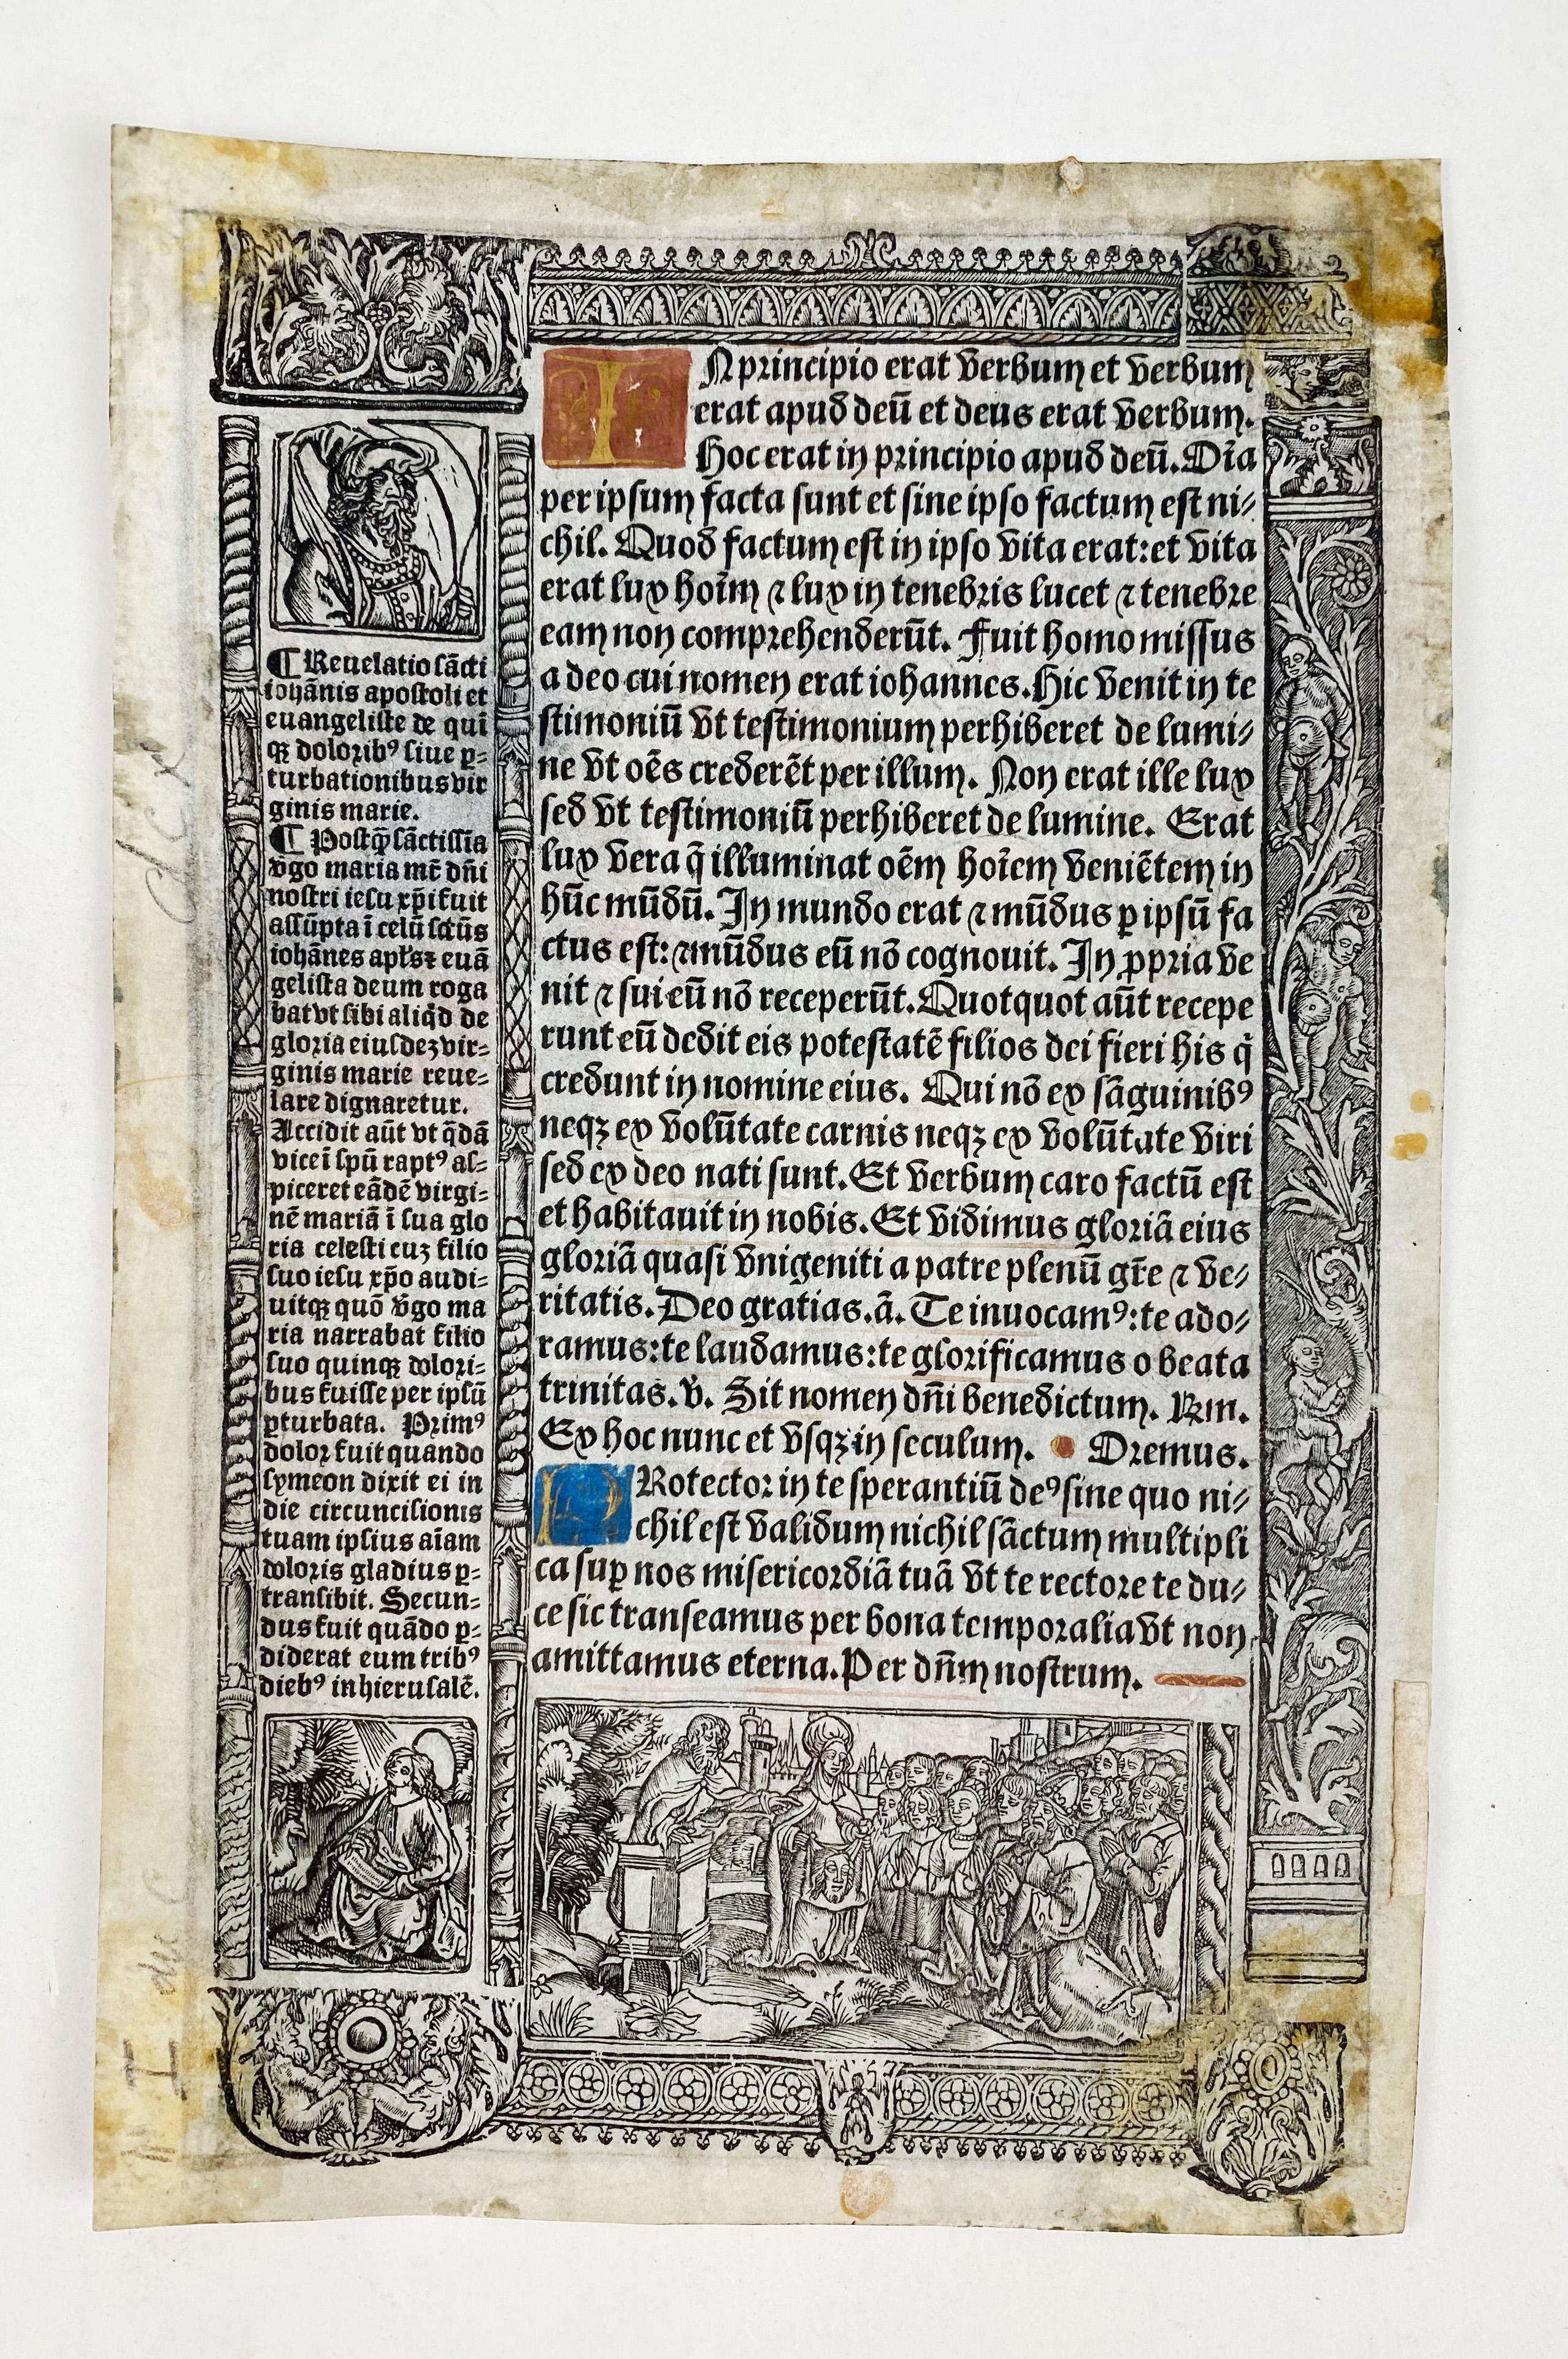 IN principio erat verbum et verbum
erat apud deū et deus erat verbum.
Hoc erat in principio apud deū. Oīa
per ipsum facta sunt et sine ipso factum est ni-
chil. Quod factum est in ipso vita erat: et vita
erat lux hoīm ⁊ lux in tenebris lucet ⁊ tenebre
eam non comprehenderūt. Fuit homo missus
a deo cui nomen erat iohannes. Hic venit in te
stimoniū vt testimonium perhiberet de lumi-
ne vt oēs crederēt per illum. Non erat ille lux
sed vt testimoniū perhiberet de lumine. Erat
lux vera q̄ illuminat oēm hoīem veniētem in
hūc mūdū. In mundo erat ⁊ mūdus ꝑ ipsū fa
ctus est: ⁊ mūdus eū nō cognouit. In ꝓpria ve
nit ⁊ sui eū nō receperūt. Quotquot aūt recepe
runt eū dedit eis potestatē filios dei fieri his q̇
credunt in nomine eius. Qui nō ex sāguinibꝰ
neqꝫ ex volūtate carnis neqꝫ ex volūtate viri
sed ex deo nati sunt. Et verbum caro factū est
et habitauit in nobis. Et vidimus gloriā eius
gloriā quasi vnigeniti a patre plenū gr̄e ⁊ ve-
ritatis. Deo gratias. ā. Te inuocamꝰ: te ado-
ramus: te laudamus: te glorificamus o beata
trinitas. v. Sit nomen dn̄i benedictum. Rm.
Ex hoc nunc et vsqꝫ in seculum. Oremus.
PRotector in te sperantiū deꝰ sine quo ni-
chil est validum nichil sāctum multipli
ca suꝑ nos misericordiā tuā vt te rectore te du-
ce sic transeamus per bona temporalia vt non
amittamus eterna. Per dn̄m nostrum.
¶ Reuelatio sācti
iohānis apostoli et
euangeliste de quī
qꝫ doloribꝰ siue ꝑ-
turbationibus vir
ginis marie.
¶ Postꝙ̄ sāctissīa
v̄go maria mr̄ dn̄i
nostri iesu xp̄i fuit
assūpta ī celū sctūs
iohānes apl̄s ⁊ euā
gelista deum roga
bat vt sibi aliq̇d de
gloria eiusdeꝫ vir-
ginis marie reue-
lare dignaretur.
Accidit aūt vt q̄dā
vice ī spū raptꝰ as-
piceret eādē virgi-
nē mariā ī sua glo
ria celesti cuꝫ filio
suo iesu xp̄o audi-
uitqꝫ quō v̄go ma
ria narrabat filio
suo quinqꝫ dolori-
bus fuisse per ipsū
ꝑturbata. Primꝰ
dolor fuit quando
symeon dixit ei in
die circuncisionis
tuam ipsius aīam
doloris gladius ꝑ-
transibit. Secun-
dus fuit quādo ꝑ-
diderat eum tribꝰ
diebꝰ in hierusalē.